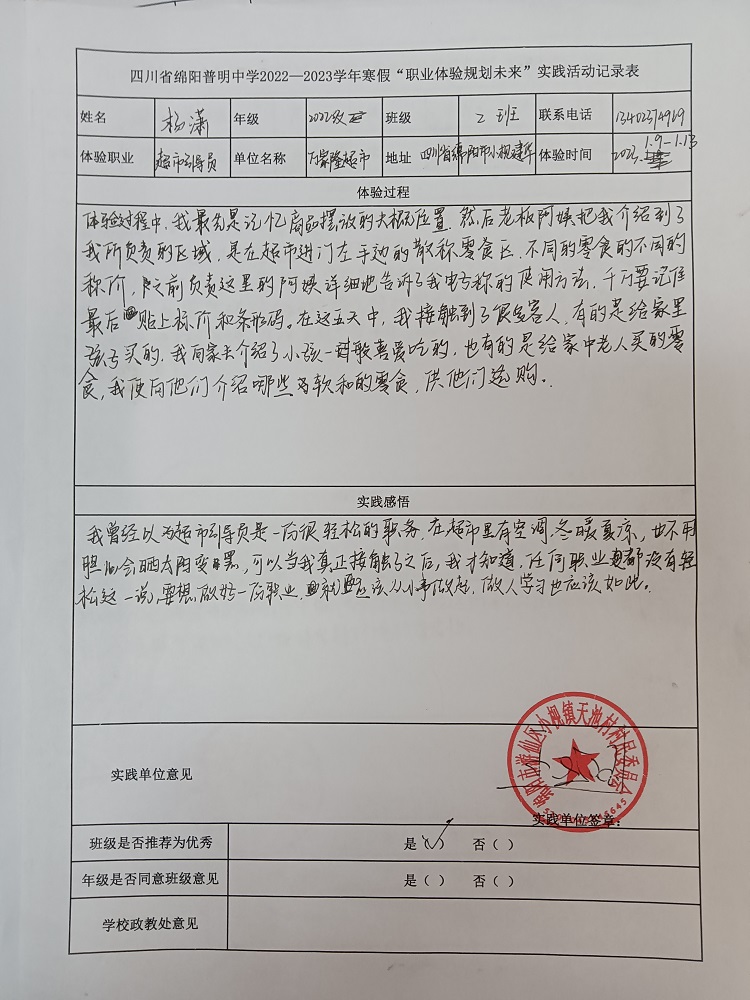 四川省绵阳普明中学2022—2023学年寒假“职业体验规划未来”实践活动记录表
姓名 杨潇 年级 2022级 班级 2班 联系电话 13402374969
体验职业 超市引导员 单位名称 万家隆超市 地址 四川省绵阳市小枧建华 体验时间 2023. 1.9-1.13
体验过程
体验过程中,我最先是记忆商品摆放的大概位置,然后老板阿姨把我介绍到了
我所负责的区域,是在超市进门左手边的散称零食区,不同的零食的不同的
称价,之前负责这里的阿姨详细地告诉了我电子称的使用方法,千万要记住
最后贴上标价和条形码。在这五天中,我接触到了很多客人,有的是给家里
孩子买的,我向家长介绍了小孩一般喜爱吃的,也有的是给家中老人买的零
食,我便向他们介绍哪些为软和的零食,供他们选购。
实践感悟
我曾经以为超市引导员是一份很轻松的职务,在超市里有空调,冬暖夏凉,也不用
担心会晒太阳变黑,可以当我真正接触了之后,我才知道,任何职业都没有轻
松这一说,要想做好一份职业,就应该从小事做起,做人学习也应该如此。
绵阳市游仙区小枧镇天池村村民委员会
实践单位意见
实践单位签章:
班级是否推荐为优秀 是(✓) 否( )
年级是否同意班级意见 是( ) 否( )
学校政教处意见